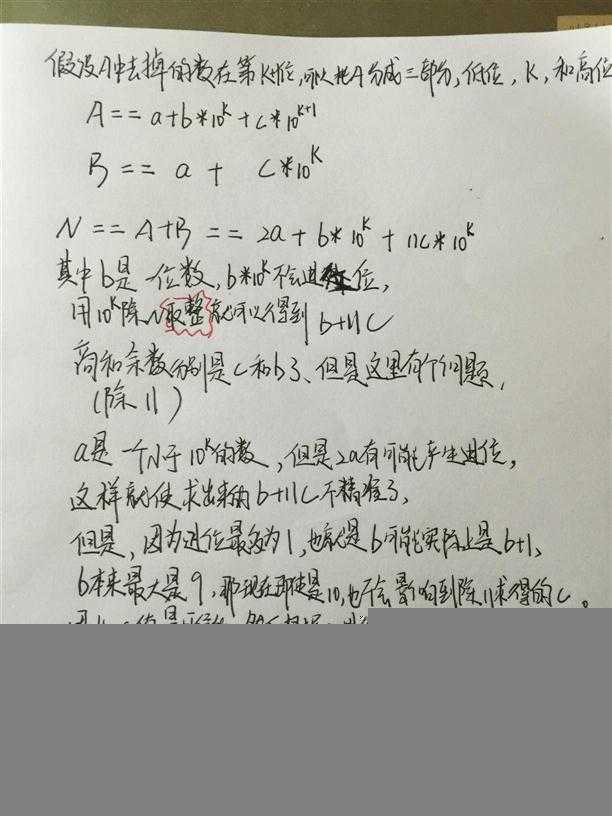 假设A中去掉的数在第k+1位,可以把A分成三部分,低位,k,和高位
A == a+b*10^k+c*10^k+1
B == a + c*10^k
N == A+B == 2a + b*10^k + 11c*10^k
其中b是一位数,b*10^k不会进位,
用10^k除N取整就可以得到 b+11c
商和余数分别是c和b了、但是这里有个问题,
(除11)
a是一个小于10^k的数,但是2a有可能产生进位,
这样就使求出来的b+11c不精准了,
但是,因为进位最多为1,也就是b可能实际上是b+1、
b本来最大是9,那现在即使是10,也不会影响到除11求得的c。